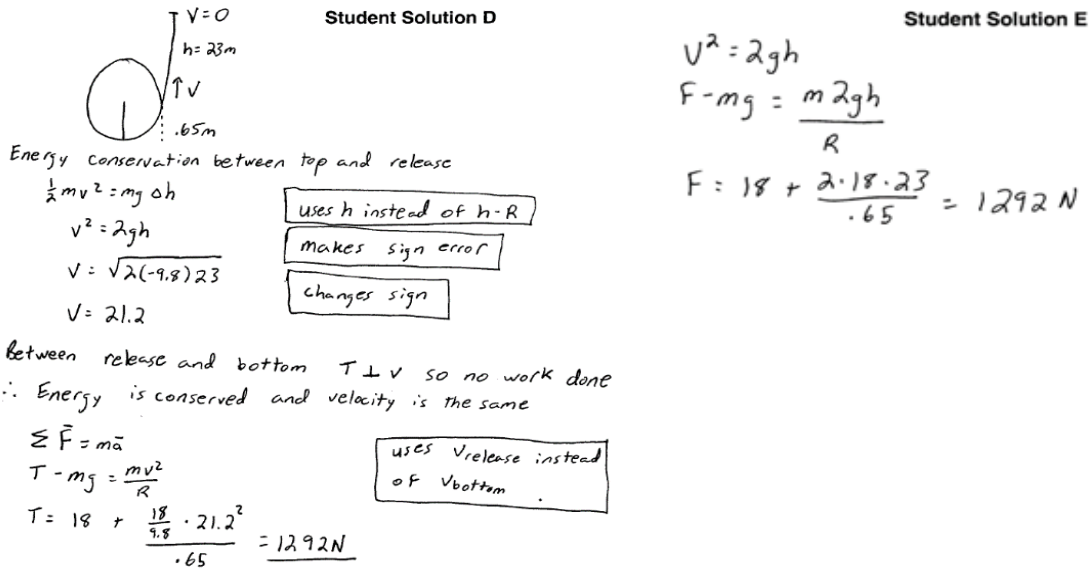 Student Solution D
V=0
h= 23m
↑V
.65m
Energy conservation between top and release
½mv² = mg Δh
v² = 2gh
V = √2(-9.8)23
V = 21.2
uses h instead of h-R
makes sign error
changes sign
Between release and bottom T ⊥ v so no work done
∴ Energy is conserved and velocity is the same
Σ F̄ = mā
T - mg = mv²/R
T = 18 + (18/9.8 · 21.2²)/.65 = 1292N
uses Vrelease instead
of Vbottom .
Student Solution E
V² = 2gh
F - mg = m2gh/R
F = 18 + 2·18·23/.65 = 1292 N